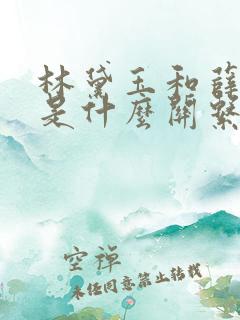 林黛玉和薛
是什麼關係
空禪
未经同意禁止转载